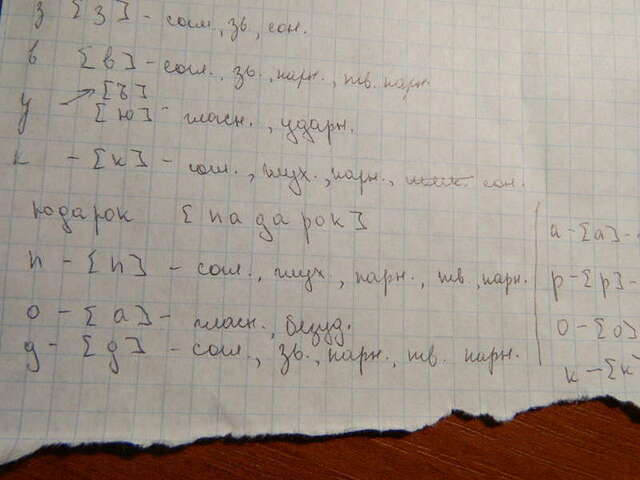 з [з] - согл., зв., сон.
в [в] - согл., зв., парн., тв. парн.
[ъ]
у [ю] - гласн., ударн.
к - [к] - согл., глух., парн., сон.
подарок [падарок]
п - [п] - согл., глух., парн., тв., парн.
о - [а] - гласн., безуд.
д - [д] - согл., зв., парн., тв. парн.
а - [а] -
р - [р] -
о - [о]
к - [к